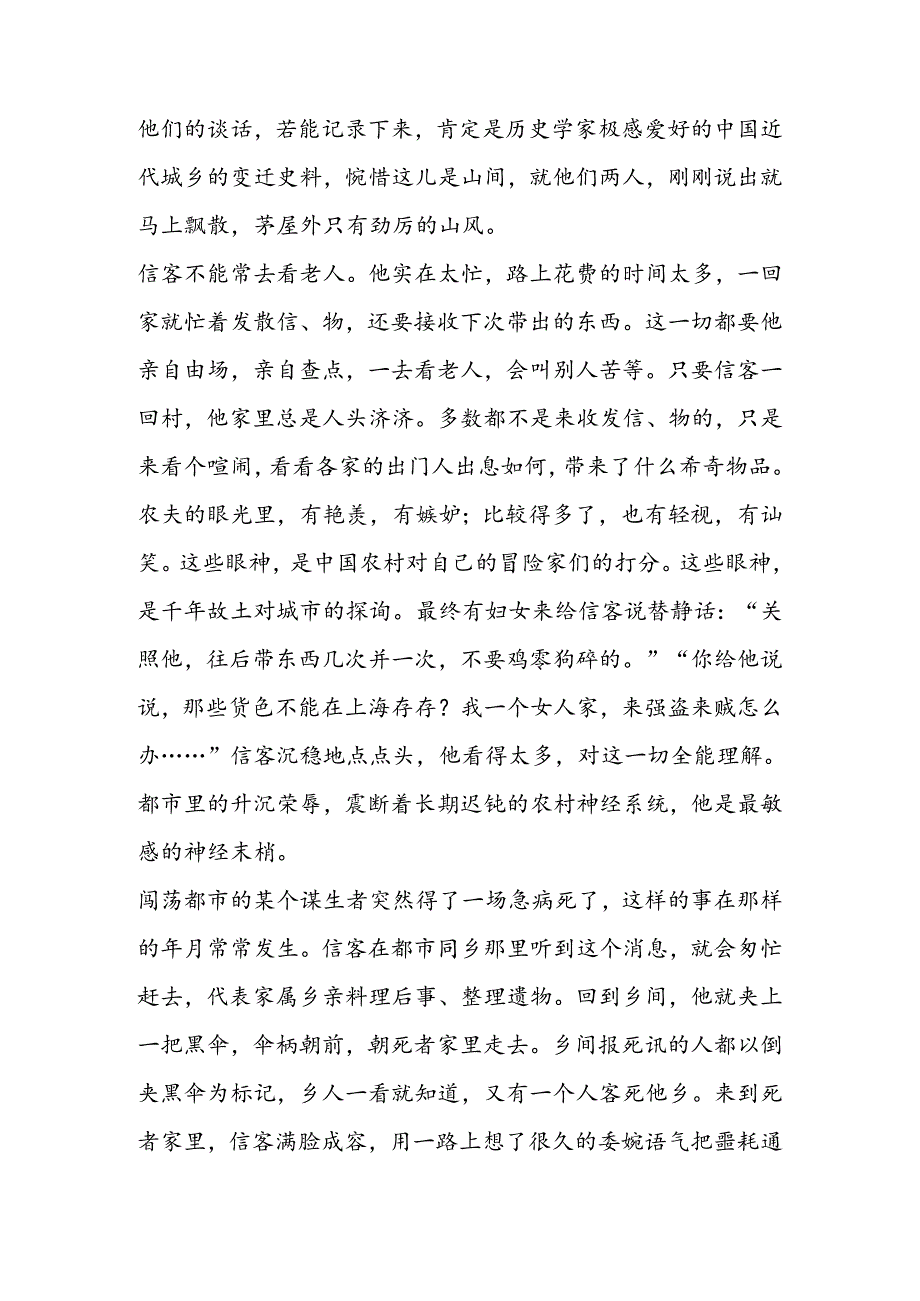 他们的谈话，若能记录下来，肯定是历史学家极感爱好的中国近
代城乡的变迁史料，惋惜这儿是山间，就他们两人，刚刚说出就
马上飘散，茅屋外只有劲厉的山风。
信客不能常去看老人。他实在太忙，路上花费的时间太多，一回
家就忙着发散信、物，还要接收下次带出的东西。这一切都要他
亲自由场，亲自查点，一去看老人，会叫别人苦等。只要信客一
回村，他家里总是人头济济。多数都不是来收发信、物的，只是
来看个喧闹，看看各家的出门人出息如何，带来了什么希奇物品。
农夫的眼光里，有艳羡，有嫉妒；比较得多了，也有轻视，有讪
笑。这些眼神，是中国农村对自己的冒险家们的打分。这些眼神，
是千年故土对城市的探询。最终有妇女来给信客说替静话：“关
照他，往后带东西几次并一次，不要鸡零狗碎的。”“你给他说
说，那些货色不能在上海存存？我一个女人家，来强盗来贼怎么
办……”信客沉稳地点点头，他看得太多，对这一切全能理解。
都市里的升沉荣辱，震断着长期迟钝的农村神经系统，他是最敏
感的神经末梢。
闯荡都市的某个谋生者突然得了一场急病死了，这样的事在那样
的年月常常发生。信客在都市同乡那里听到这个消息，就会匆忙
赶去，代表家属乡亲料理后事、整理遗物。回到乡间，他就夹上
一把黑伞，伞柄朝前，朝死者家里走去。乡间报死讯的人都以倒
夹黑伞为标记，乡人一看就知道，又有一个人客死他乡。来到死
者家里，信客满脸成容，用一路上想了很久的委婉语气把噩耗通